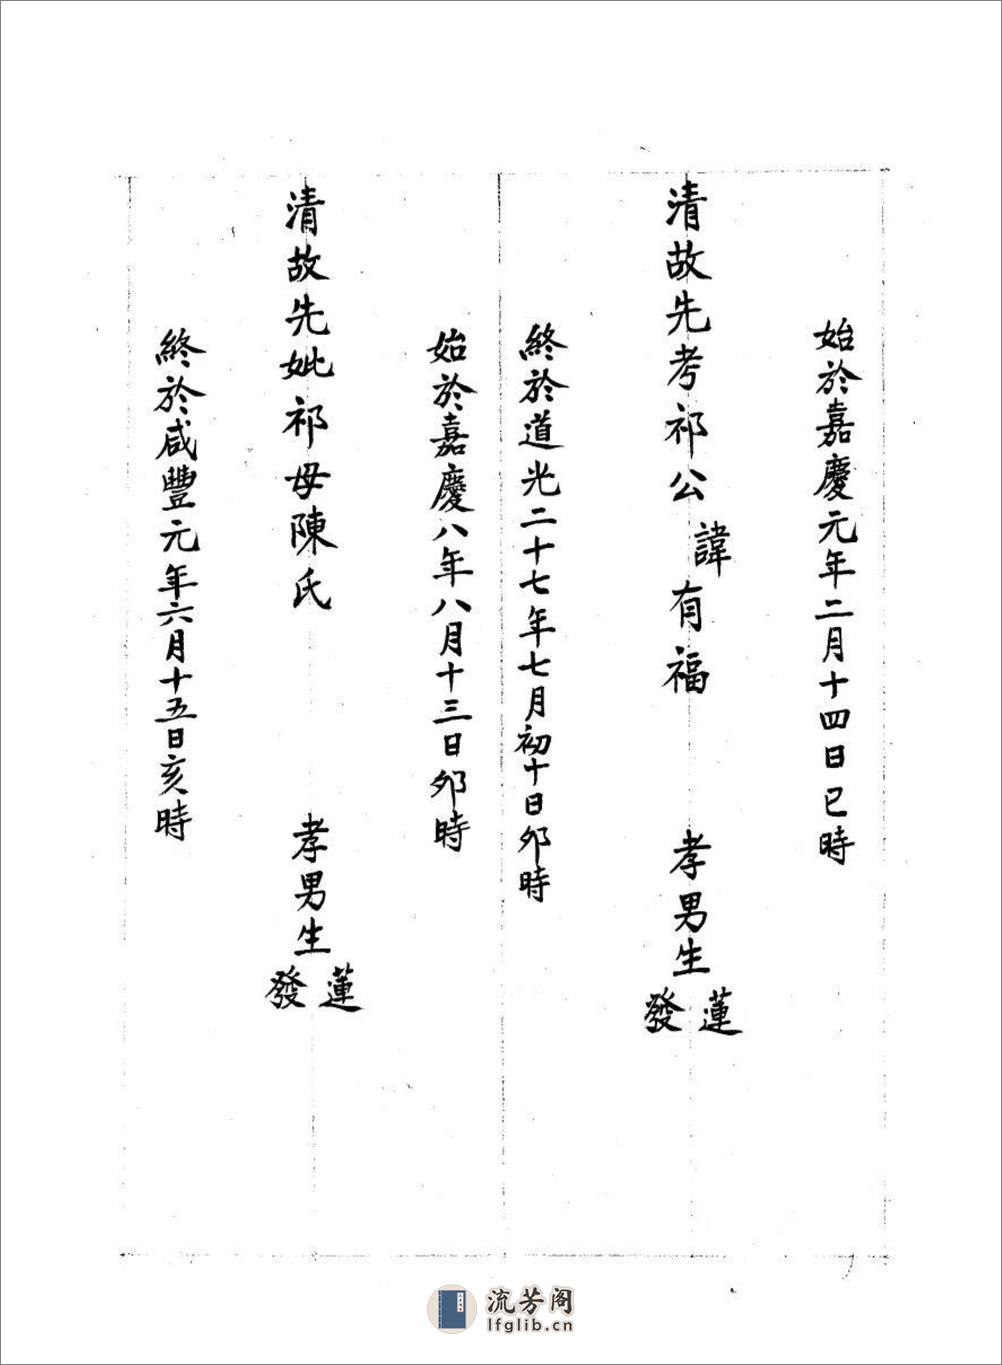 始於嘉慶元年二月十四日巳時
清故先考祁公諱有福 孝男生蓮發
終於道光二十七年七月初十日卯時
始於嘉慶八年八月十三日卯時
清故先妣祁母陳氏 孝男生蓮發
終於咸豐元年六月十五日亥時
流芳阁
lfglib.cn